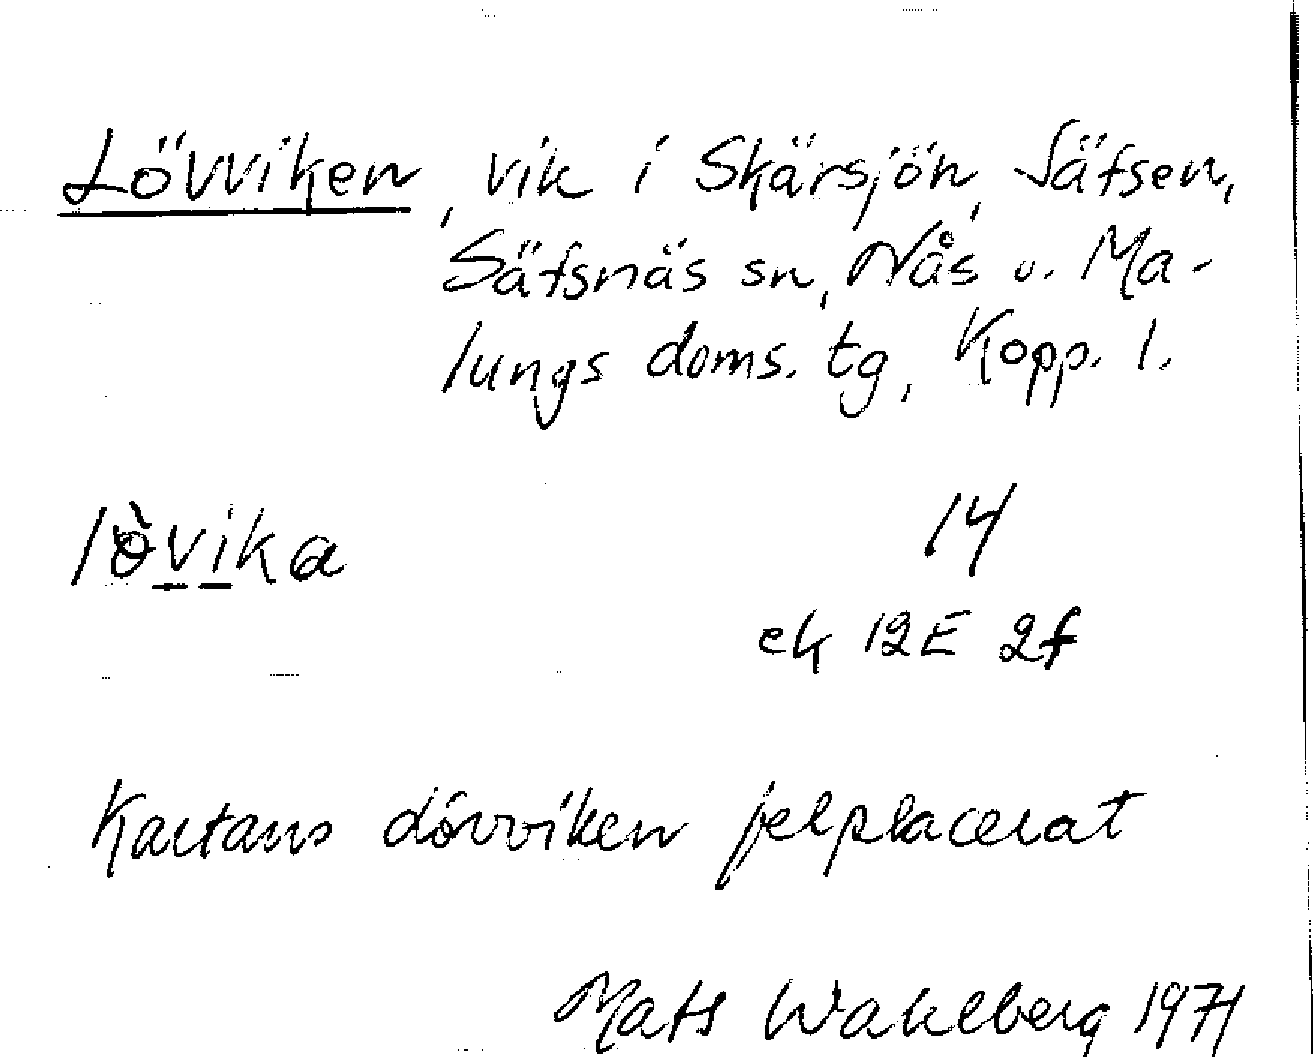 Lövviken, vik i Skärsjön, Säfsen,
Säfsnäs sn, Nås o. Ma-
lungs doms. tg, Kopp. l.
lòvika 14
ek 12E 2f
Kartans Lövviken felplacerat
Mats Wahlberg 1971